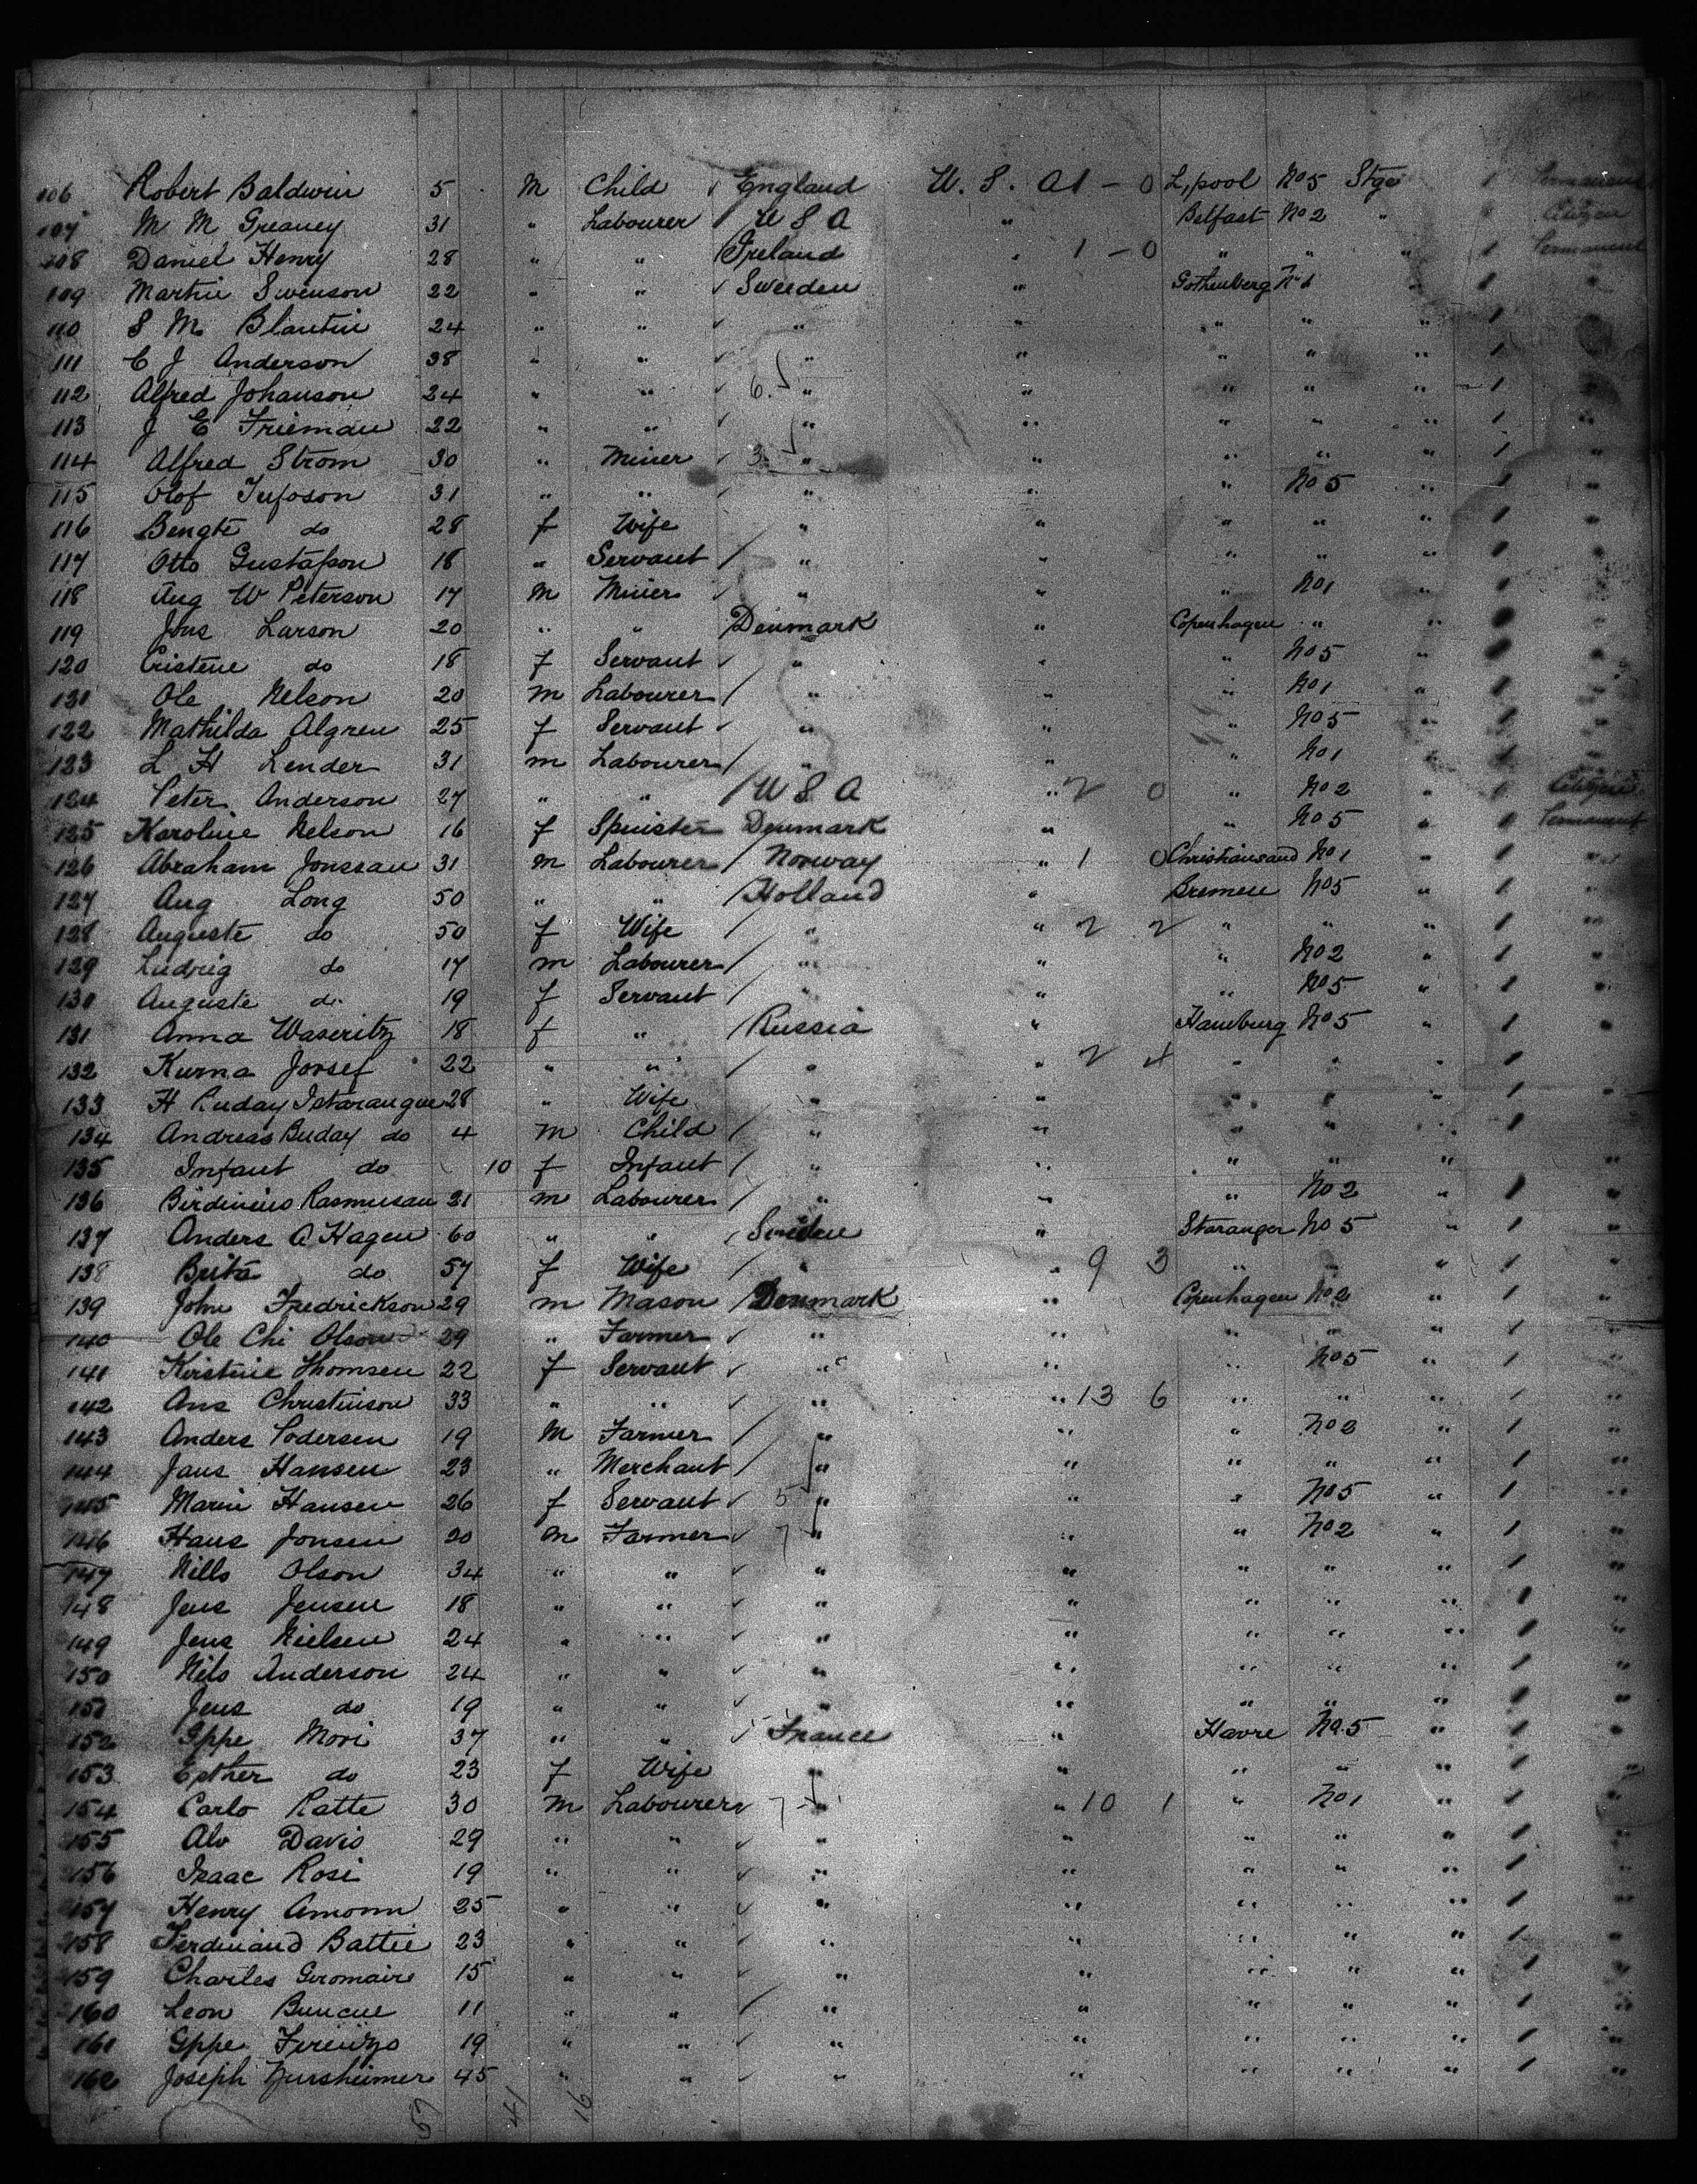 106 Robert Baldwin 5 m Child England U. S. A 1 - 0 L,pool No 5 Stge 1 Permanent
107 M M Greaney 31 " Labourer U S A " Belfast No 2 " 1 Citizen
108 Daniel Henry 28 " " Ireland " 1 - 0 " " " 1 Permanent
109 Martin Swenson 22 " " Sweeden " Gothenberg No 1 " 1 "
110 S M Blantin 24 " " " " " " " 1 "
111 C J Anderson 38 " " " " " " " 1 "
112 Alfred Johanson 24 " " 6. " " " " " 1 "
113 J E Frieman 22 " " " " " " " 1 "
114 Alfred Strom 30 " Miner 3. " " " " " 1 "
115 Olof 31 " " " " " No 5 " 1 "
116 Bengte do 28 f Wife " " " " " 1 "
117 Otto Gustafson 18 " Servant " " " " " 1 "
118 Aug W Peterson 17 m Miner " " " No 1 " 1 "
119 Jons Larson 20 " " Denmark " Copenhagen " " 1 "
120 Cristene do 18 f Servant " " " No 5 " 1 "
121 Ole Nelson 20 m Labourer " " " No 1 " 1 "
122 Mathilda Algren 25 f Servant " " " No 5 " 1 "
123 L H Lender 31 m Labourer " " " No 1 " 1 "
124 Peter Anderson 27 " " U S A " 2 0 " No 2 " 1 Citizen
125 Karoline Nelson 16 f Spinster Denmark " " No 5 " 1 Permanent
126 Abraham Jonssan 31 m Labourer Norway " 1 0 Christiansand No 1 " 1 "
127 Aug Long 50 " " Holland " Bremen No 5 " 1 "
128 Auguste do 50 f Wife " " 2 2 " " " 1 "
129 Ludwig do 17 m Labourer " " " No 2 " 1 "
130 Auguste do 19 f Servant " " " No 5 " 1 "
131 Anna Waseritz 18 f " Russia " Hamburg No 5 " 1 "
132 Kurna Jossef 22 " " " " 2 4 " " " 1
133 H Ruday 28 " Wife " " " " " 1 "
134 Andreas Buday do 4 m Child " " " " " 1 "
135 Infant do 10 f Infant " " " " " "
136 Rasmusan 21 m Labourer " " " No 2 " 1 "
137 Anders A Hagen 60 " " Sweden " Stavanger No 5 " 1 "
138 Brita do 57 f Wife " " 9 3 " " " 1 "
139 John Fredrickson 29 m Mason Denmark " Copenhagen No 2 " 1 "
140 Ole Chi Olson 29 " Farmer " " " " " 1 "
141 Kirstine Thomsen 22 f Servant " " " No 5 " 1 "
142 Ans Christinson 33 " " " " 13 6 " " " "
143 Anders Podersen 19 m Farmer " " " No 2 " 1 "
144 Jans Hansen 23 " Merchant " " " " " 1 "
145 Marin Hansen 26 f Servant 5 " " " No 5 " 1 "
146 Hans Jonsen 20 m Farmer 7 " " " No 2 " 1 "
147 Nills Olson 34 " " " " " " " 1 "
148 Jens Jensen 18 " " " " " " " 1 "
149 Jens Nielsen 24 " " " " " " " 1 "
150 Nils Anderson 24 " " " " " " " 1 "
151 Jens do 19 " " " " " " " 1 "
152 Gppe Mori 37 " " France " Havre No 5 " 1 "
153 Esther do 23 f Wife " " " " " 1 "
154 Carlo Ratte 30 m Labourer 7 " " 10 1 " No 1 " 1 "
155 Alo Davis 29 " " " " " " " 1 "
156 Isaac Rosi 19 " " " " " " " 1 "
157 Henry Amonn 25 " " " " " " " 1 "
158 Ferdinand Battie 23 " " " " " " " 1 "
159 Charles Geromaire 15 " " " " " " " 1 "
160 Leon 11 " " " " " " " 1 "
161 Gppe 19 " " " " " " " 1 "
162 Joseph 45 " " " " " " " 1 "
57 41 16